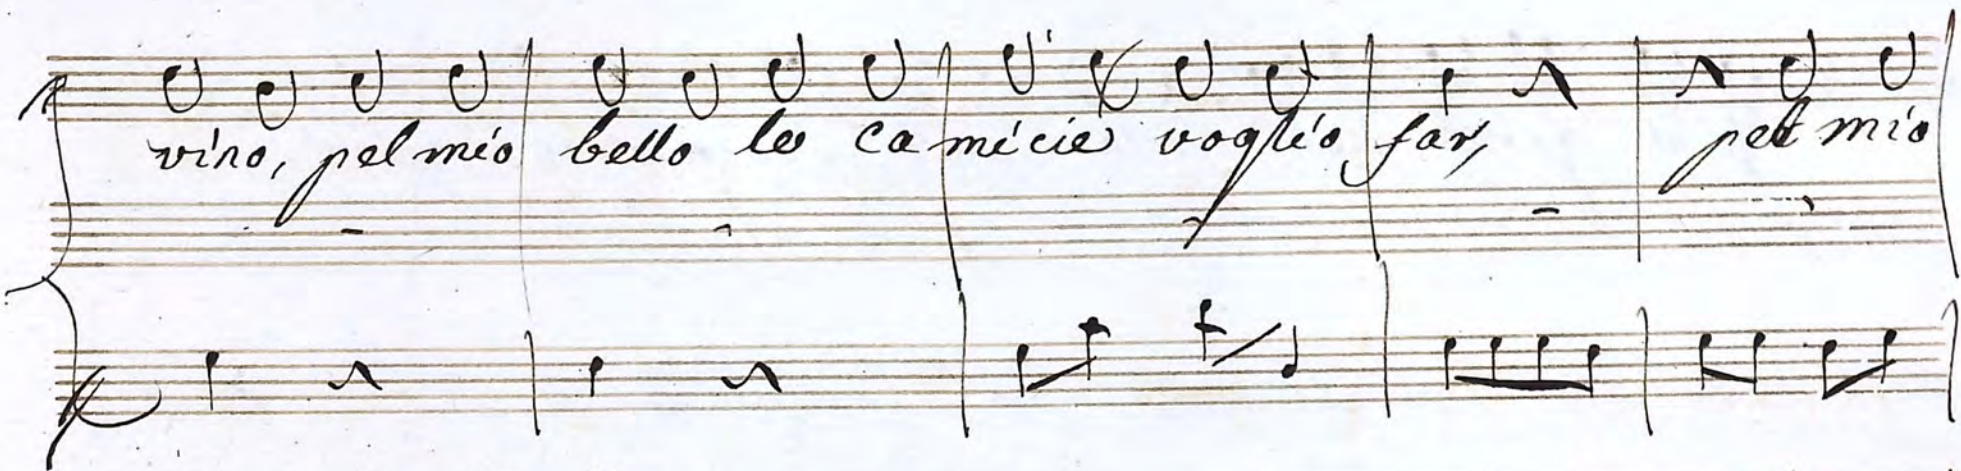 vino, pel mio bello le camicie voglio far, pel mio